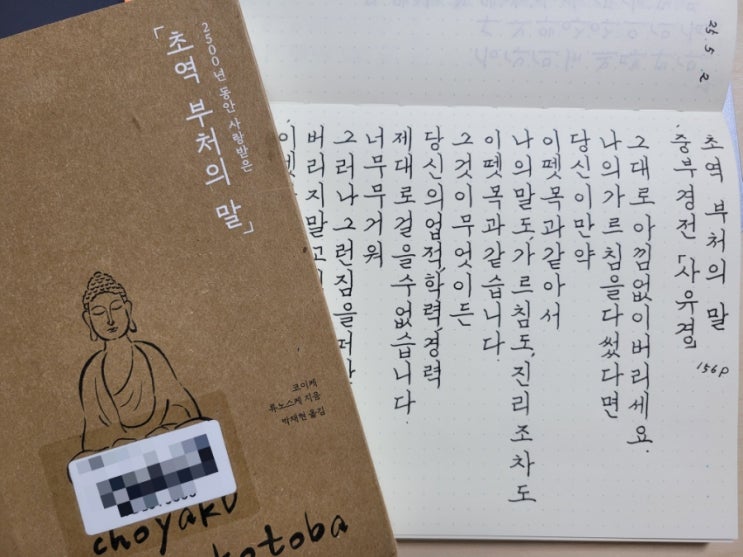 2500년 동안 사랑받은
「초역 부처의 말」
코이케
류노스케 지음
박재현 옮김
choyaku
kotoba
25. 5. 2.
이뗏
버리지말고
그러나그런짐을떠안
너무무거워
제대로걸을수없습니다.
당신의업적,학력,경력
그것이무엇이든
이뗏목과같습니다.
나의말도,가르침도,진리조차도
이뗏목과같아서
당신이만약
나의가르침을다썼다면
그대로아낌없이버리세요.
중부경전「사유경」
초역 부처의 말
156p